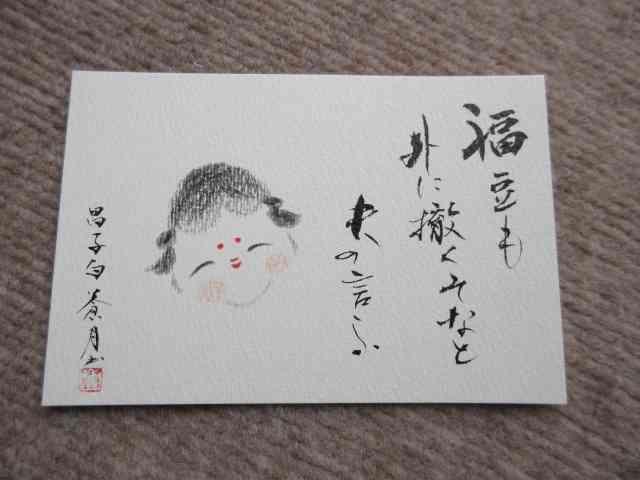 福豆も
外に撒くそなと
夫の言ふ
昌子句 月